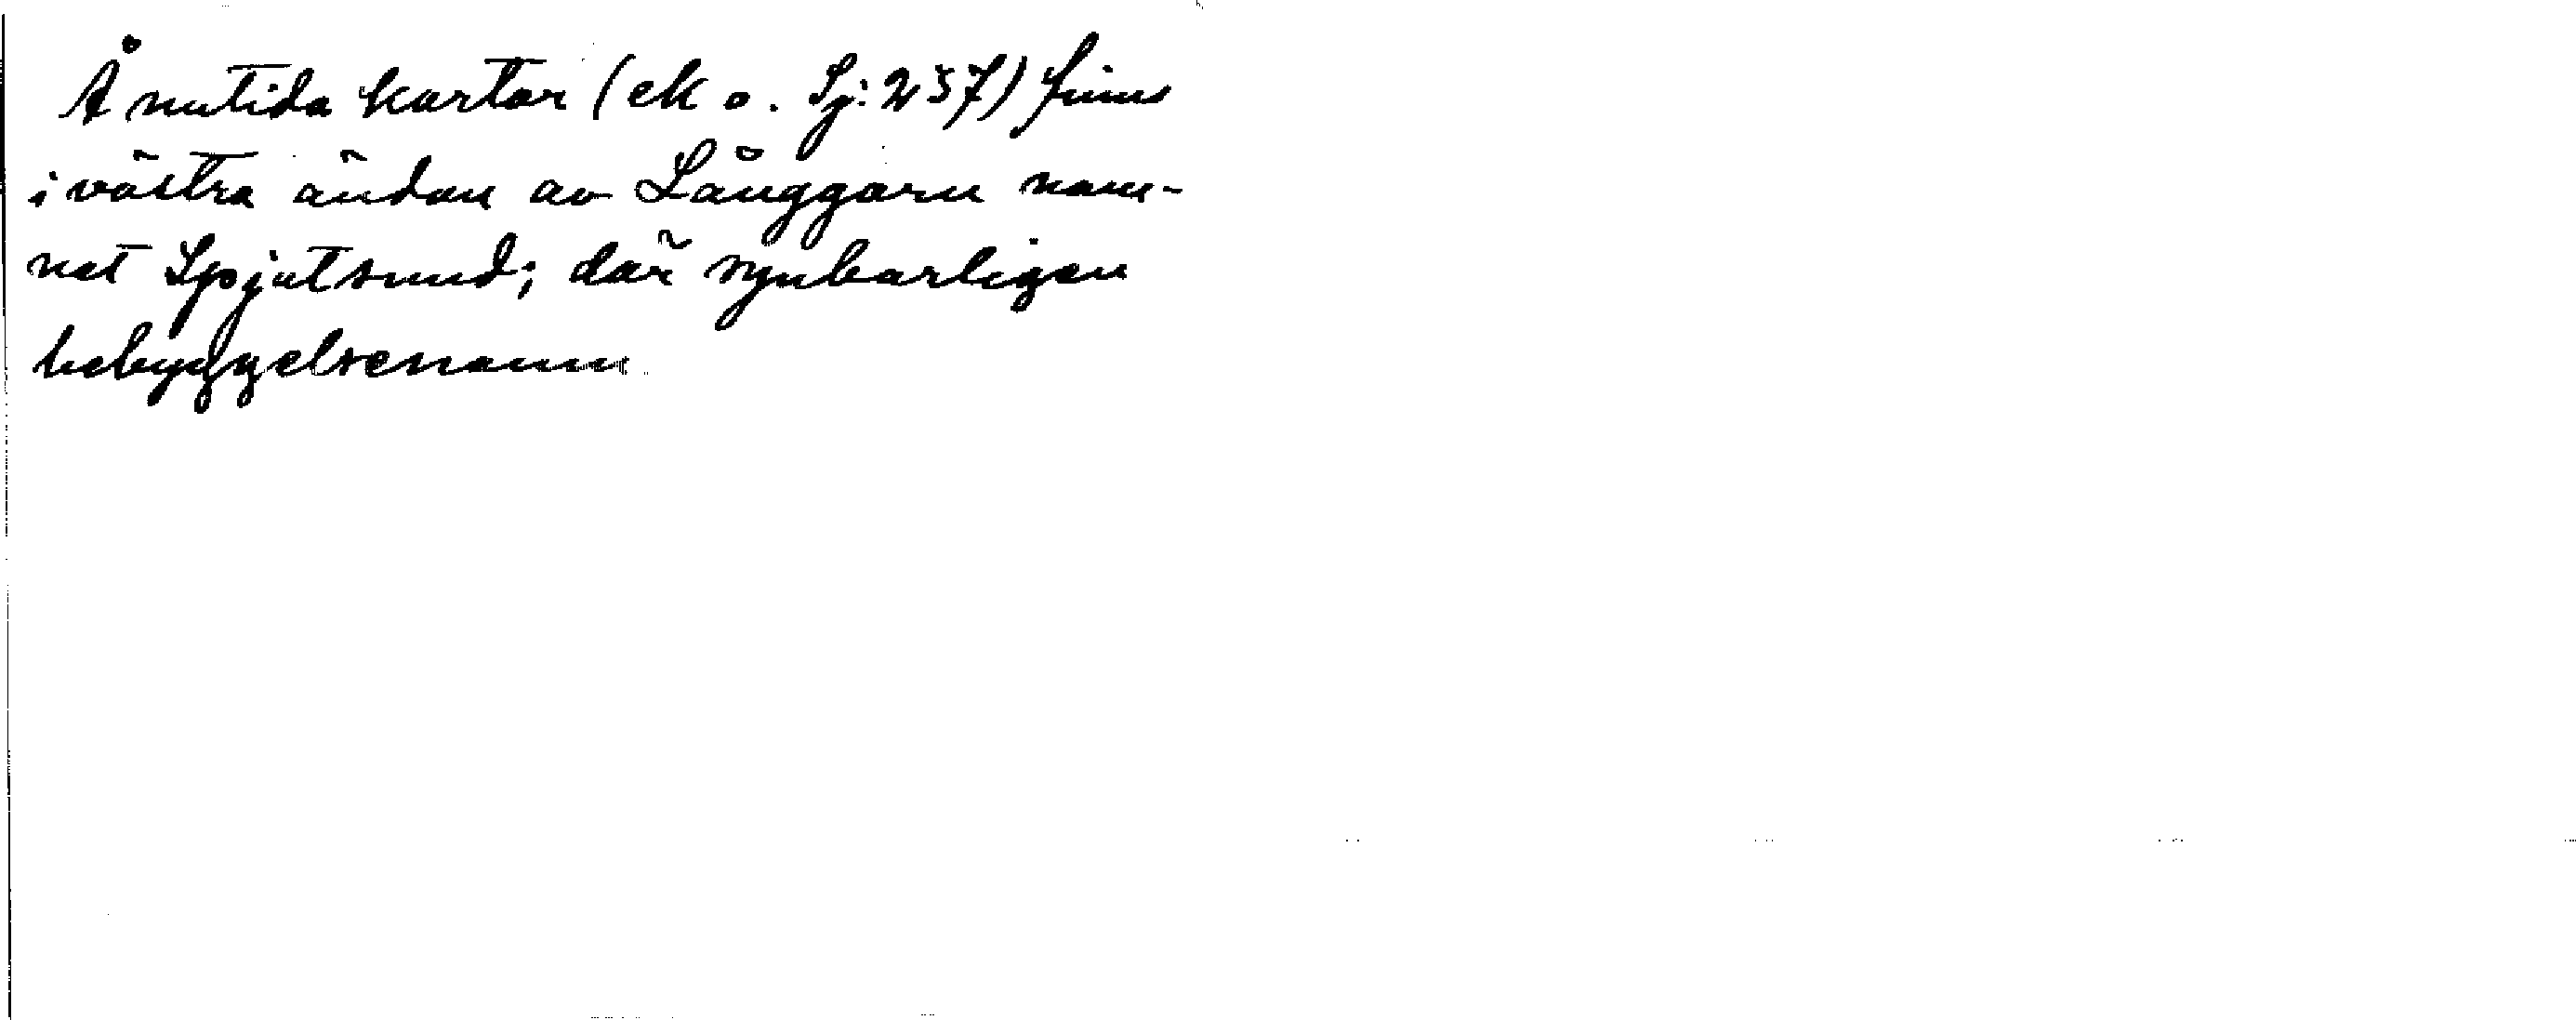 Å nutida kartor (ek o. Sj: 257) finns
i västra ändan av Långgarn nam-
net Spjutsund; där synbarligen
bebyggelsenamn